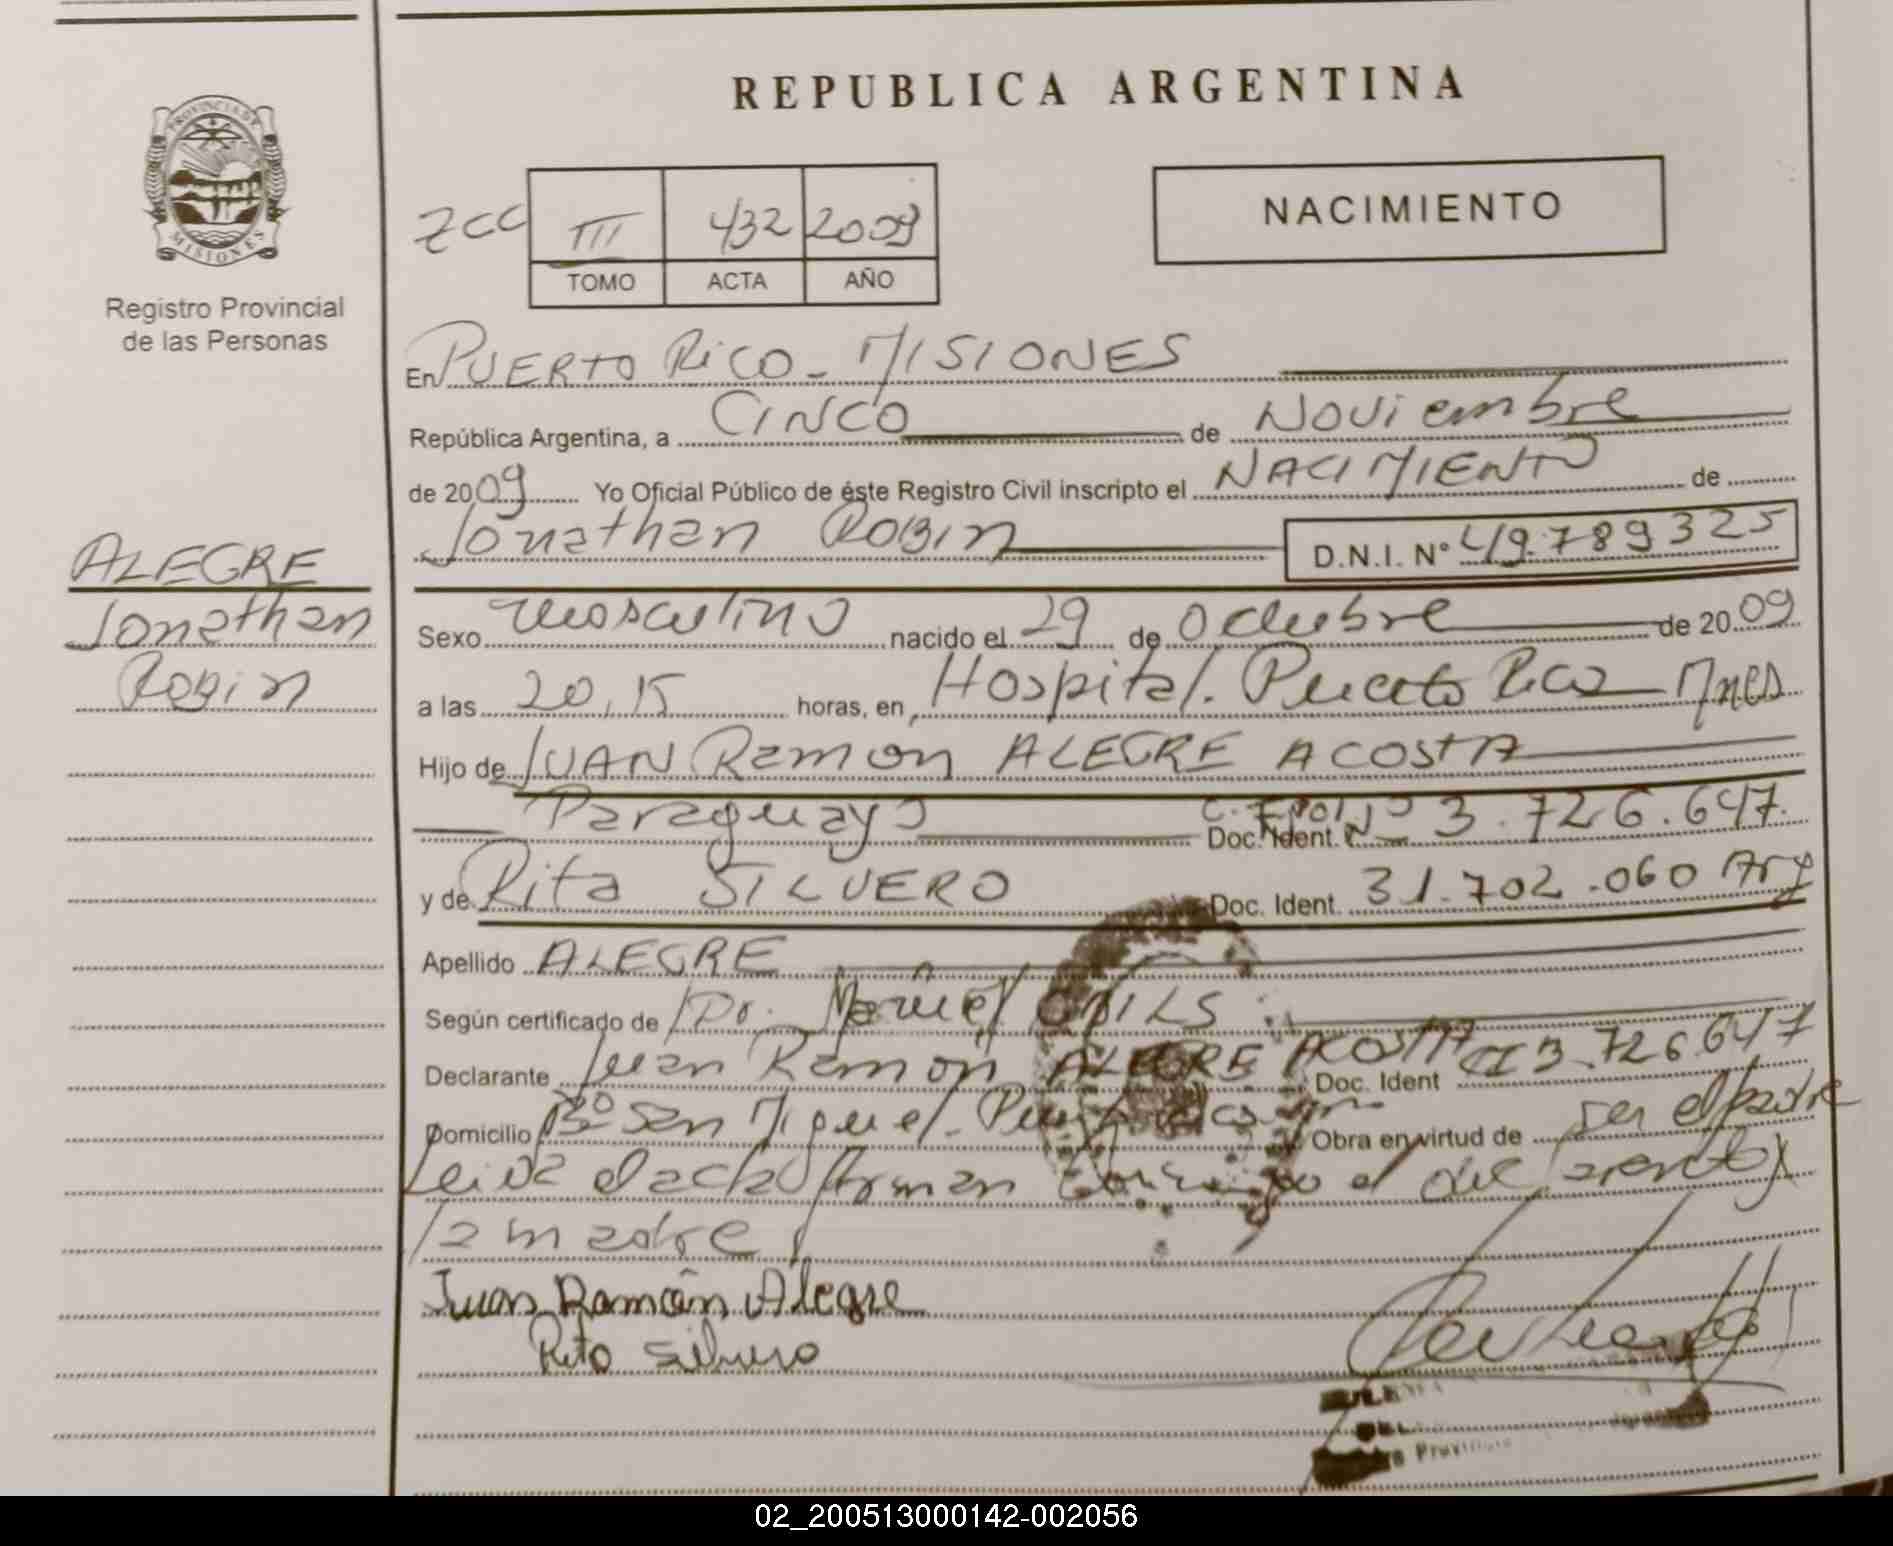 REPUBLICA ARGENTINA
PROVINCIA DE
MISIONES
Registro Provincial
de las Personas
ZCC III 432 2009
TOMO ACTA AÑO
NACIMIENTO
En PUERTO RICO - MISIONES
República Argentina, a CINCO de Noviembre
de 2009 Yo Oficial Público de éste Registro Civil inscripto el NACIMIENTO de
Jonathan ROBIN D.N.I. N° 49.789325
ALEGRE
Jonathan
Robin
Sexo masculino nacido el 29 de Octubre de 2009
a las 20,15 horas, en Hospital. Puerto Rico Mnes
Hijo de JUAN Ramon ALEGRE ACOSTA
Paraguayo Doc. Ident. N° 3.726.647.
y de Rita SILVERO Doc. Ident. 31.702.060 Arg
Apellido ALEGRE
Según certificado de Dr. Manuel
Declarante Juan Ramon ALEGRE ACOSTA Doc. Ident CI 3.726.647
Domicilio B° San Miguel - Obra en virtud de ser el padre
Leida el acta firman conmigo el declarante y
la madre
Juan Ramón Alegre
Rita Silvero
02_200513000142-002056